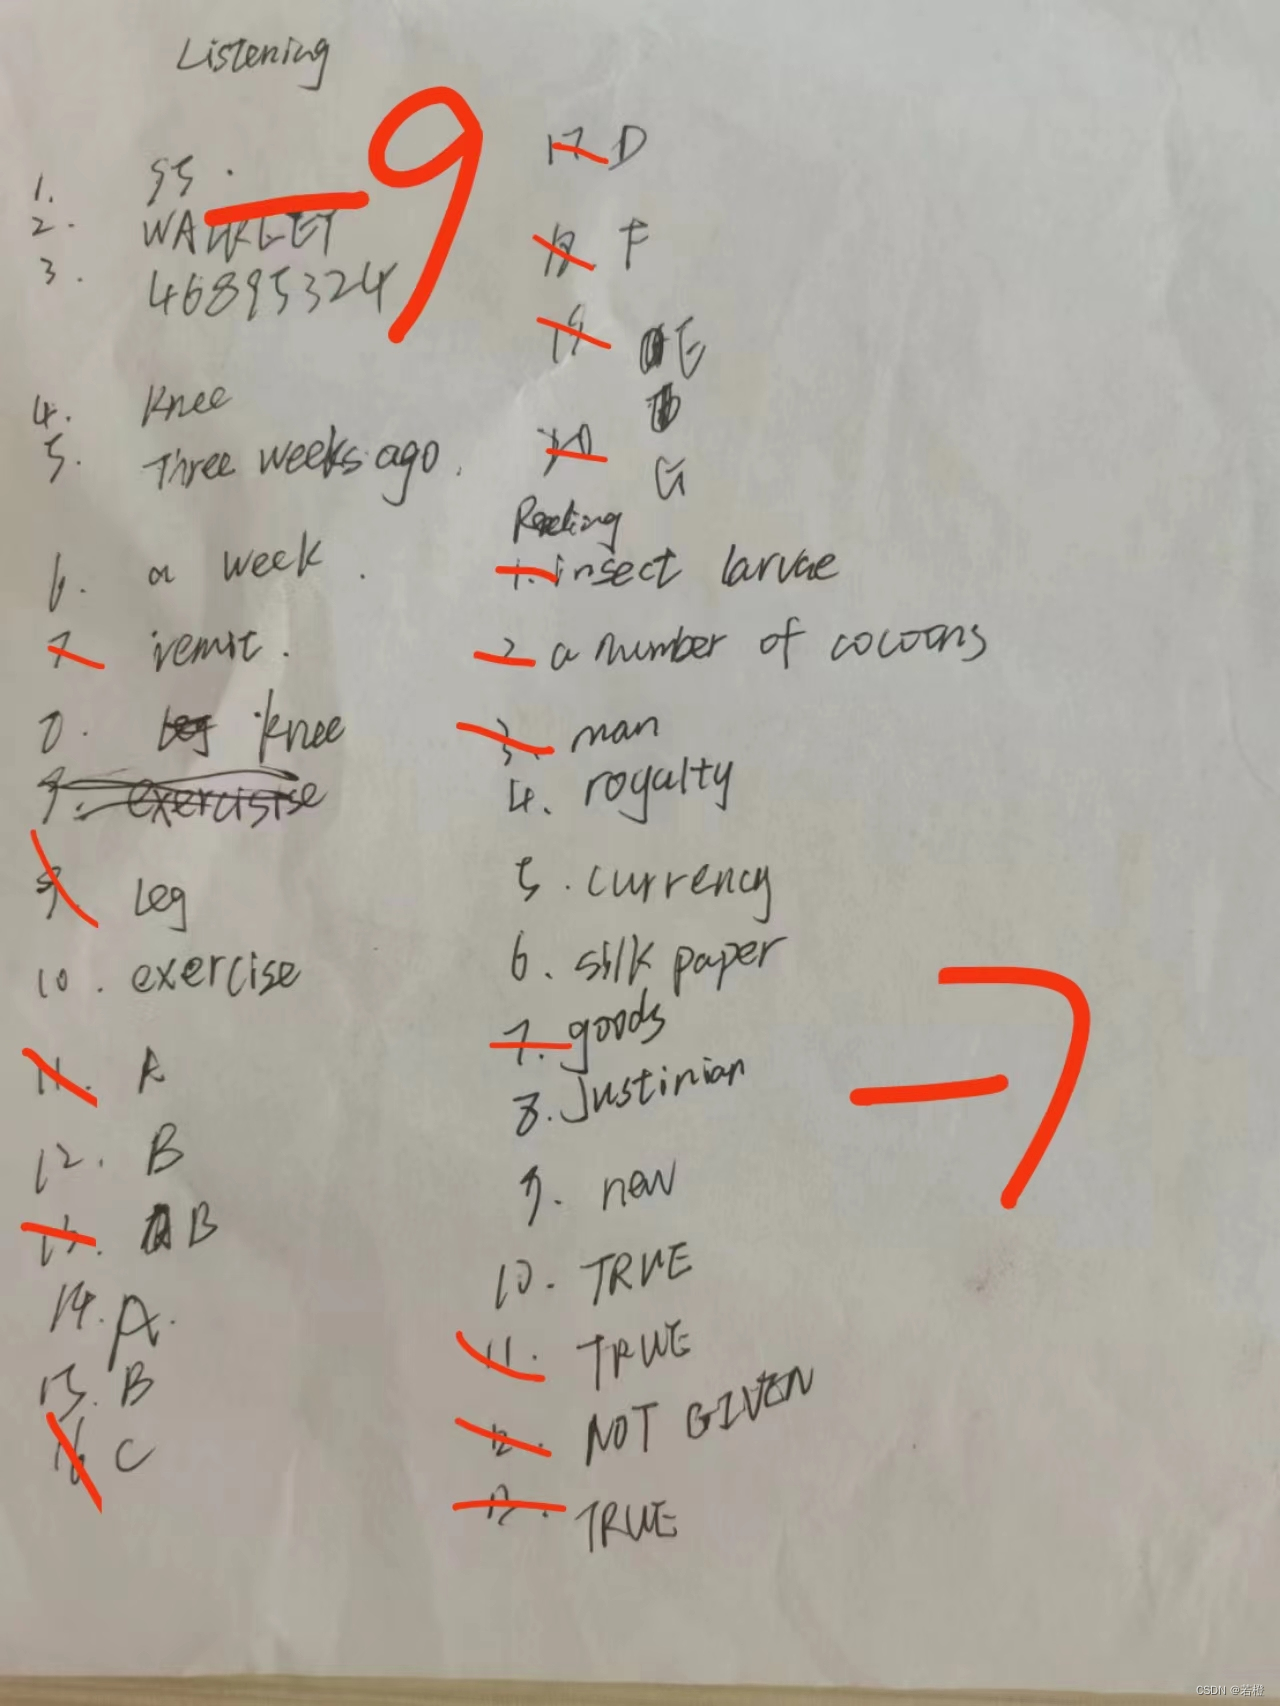 Listening
-9
1. 95.
2. WALKLET
3. 46895324
4. Knee
5. Three weeks ago.
6. a week.
7. remit.
8. leg knee
9. exercisise
9. leg
10. exercise
11. A
12. B
13. B
14. A.
15. B
16 C
17 D
18 F
19 E
20 G
Reading
1. insect larvae
2 a number of cocoons
3. man
4. royalty
5. currency
6. silk paper
7. goods
8. Justinian
-7
9. new
10. TRUE
11. TRUE
12. NOT GIVEN
13. TRUE
CSDN @若橙